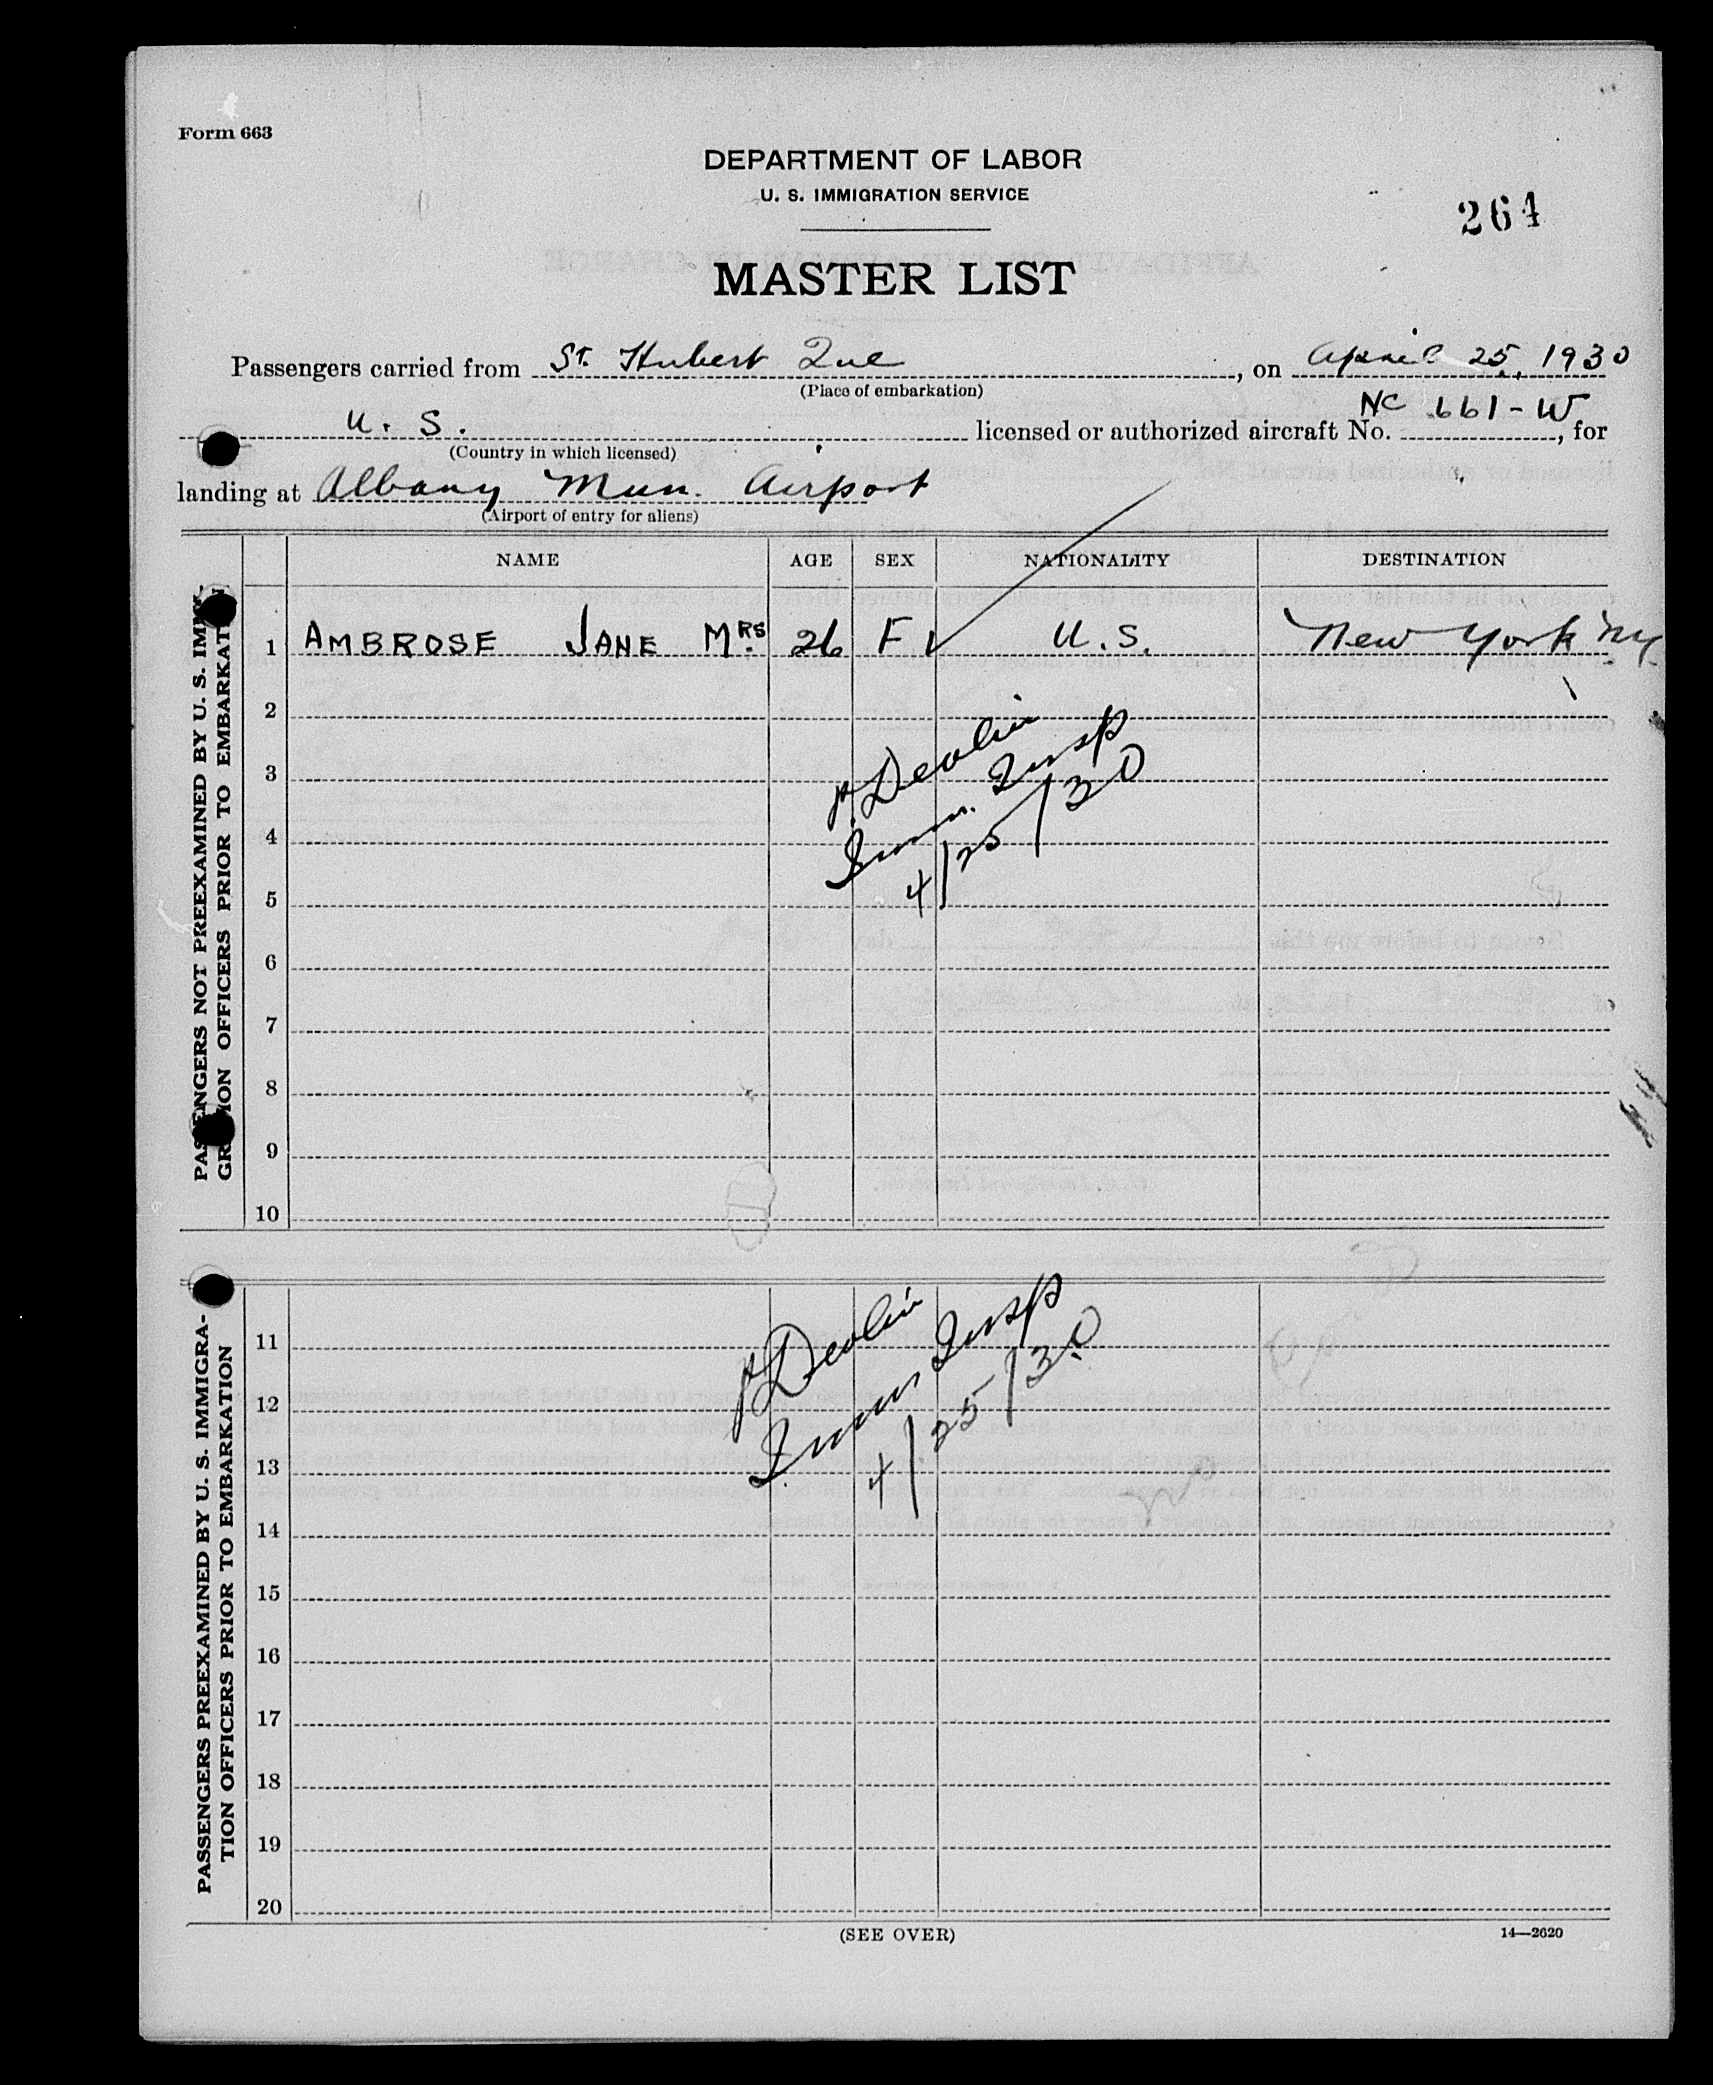 Form 663
DEPARTMENT OF LABOR
U. S. IMMIGRATION SERVICE
264
MASTER LIST
Passengers carried from St. Hubert Que, on April 25, 1930
(Place of embarkation)
U. S. licensed or authorized aircraft No. NC 661-W, for
(Country in which licensed)
landing at Albany Mun. Airport
(Airport of entry for aliens)
NAME AGE SEX NATIONALITY DESTINATION
PASSENGERS NOT PREEXAMINED BY U. S. IMMI-
GRATION OFFICERS PRIOR TO EMBARKATION
1 AMBROSE JANE MRS. 26 F U.S. New York NY.
2
3
4
5
6
7
8
9
10
Devlin
Imm. Insp
4/25/30
PASSENGERS PREEXAMINED BY U. S. IMMIGRA-
TION OFFICERS PRIOR TO EMBARKATION
11
12
13
14
15
16
17
18
19
20
Devlin
Imm Insp
4/25/30
(SEE OVER)
14—2620